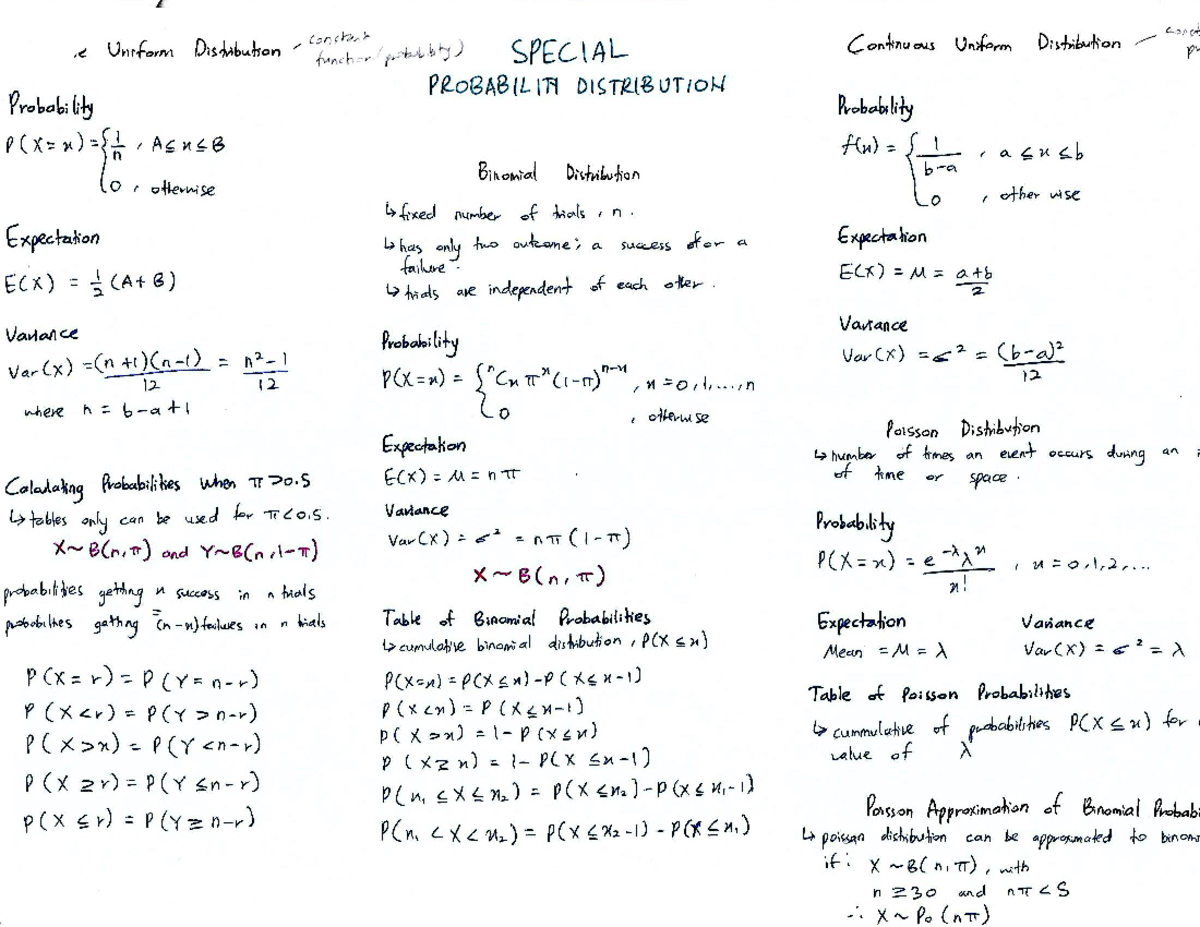 SPECIAL
PROBABILITY DISTRIBUTION
.e Uniform Distribution - constant
function (probability)
Probability
P(X=x) = { 1/n , A≤x≤B
0 , otherwise
Expectation
E(X) = 1/2 (A+B)
Variance
Var(X) = (n+1)(n-1)/12 = n²-1/12
where n = b-a+1
Calculating Probabilities when π>0.5
↳ tables only can be used for π<0.5.
X~B(n,π) and Y~B(n,1-π)
probabilities getting x success in n trials
=
probabilities getting (n-x) failures in n trials
P(X=r) = P(Y=n-r)
P(X<r) = P(Y>n-r)
P(X>x) = P(Y<n-r)
P(X≥r) = P(Y≤n-r)
P(X≤r) = P(Y≥n-r)
Binomial Distribution
↳ fixed number of trials, n.
↳ has only two outcome; a success or a
failure.
↳ trials are independent of each other.
Probability
P(X=x) = { ⁿCx πˣ(1-π)ⁿ⁻ˣ , x=0,1,...,n
0 , otherwise
Expectation
E(X) = μ = nπ
Variance
Var(X) = σ² = nπ(1-π)
X~B(n,π)
Table of Binomial Probabilities
↳ cumulative binomial distribution, P(X≤x)
P(X=x) = P(X≤x)-P(X≤x-1)
P(X<x) = P(X≤x-1)
P(X>x) = 1-P(X≤x)
P(X≥x) = 1-P(X≤x-1)
P(x₁≤X≤x₂) = P(X≤x₂)-P(X≤x₁-1)
P(x₁<X<x₂) = P(X≤x₂-1)-P(X≤x₁)
Continuous Uniform Distribution -
Probability
f(x) = { 1/b-a , a≤x≤b
0 , other wise
Expectation
E(X) = μ = a+b/2
Variance
Var(X) = σ² = (b-a)²/12
Poisson Distribution
↳ number of times an event occurs during an
of time or space.
Probability
P(X=x) = e^-λ λ^x / x! , x=0,1,2,...
Expectation Variance
Mean = μ = λ Var(X) = σ² = λ
Table of Poisson Probabilities
↳ cummulative of probabilities P(X≤x) for
value of λ
Poisson Approximation of Binomial Probabi
↳ poisson distribution can be approximated to binom
if: X~B(n,π), with
n≥30 and nπ<5
∴ X~Po(nπ)